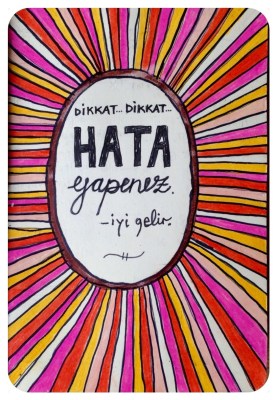 DİKKAT... DİKKAT...
HATA
yapınız.
-iyi gelir.